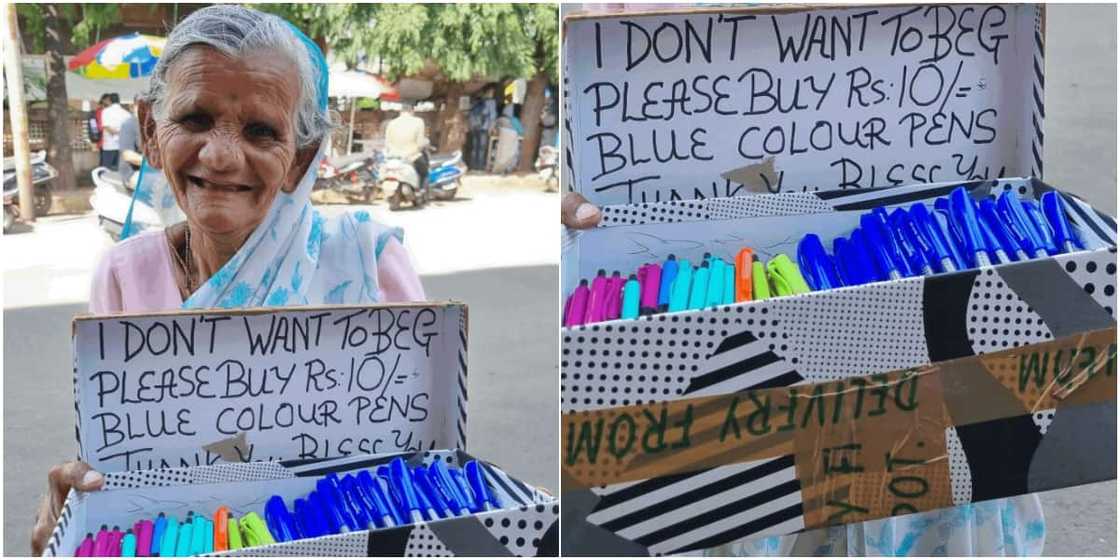 I DON'T WANT To BEG
PLEASE BUY Rs:10/-
BLUE COLOUR PENS
THANK You BLESS You
I DON'T WANT To BEG
PLEASE BUY Rs:10/-
BLUE COLOUR PENS
THANK You BLESS You
DELIVERY FROM